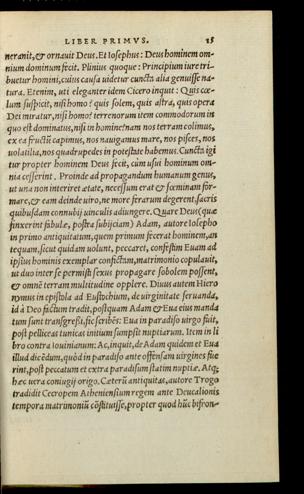 LIBER PRIMVS. 15
nerauit, & ornauit Deus. Et Iosephus: Deus hominem om-
nium dominum fecit. Plinius quoque: Principium iure tri-
buetur homini, cuius causa uidetur cuncta alia genuisse na-
tura. Etenim, uti eleganter idem Cicero inquit: Quis cœ-
lum suspicit, nisi homo? quis solem, quis astra, quis opera
Dei miratur, nisi homo? terrenorum item commodorum in
quo est dominatus, nisi in homine? nam nos terram colimus,
ex ea fructũ capimus, nos nauigamus mare, nos pisces, nos
uolatilia, nos quadrupedes in potestate habemus. Cuncta igi
tur propter hominem Deus fecit, cùm usui hominum om-
nia cesserint. Proinde ad propagandum humanum genus,
ut una non interiret ætate, necessum erat & fœminam for-
mare, & eam deinde uiro, ne more ferarum degerent, sacris
quibusdam connubij uinculis adiungere. Quare Deus (quæ
finxerint fabulæ, postra subijciam) Adam, autore Iosepho
in primo antiquitatum, quem primum fecerat hominem, an
tequam, sicut quidam uolunt, peccaret, confestim Euam ad
ipsius hominis exemplar confictam, matrimonio copulauit,
ut duo inter se permisti sexus propagare sobolem possent,
& omnẽ terram multitudine opplere. Diuus autem Hiero
nymus in epistola ad Eustochium, de uirginitate seruanda,
id à Deo factum tradit, postquam Adam & Eua eius manda
tum sunt transgressi, sic scribẽs: Eua in paradiso uirgo fuit,
post pelliceas tunicas initium sumpsit nuptiarum. Item in li
bro contra Iouinianum: Ac, inquit, de Adam quidem et Eua
illud dicẽdum, quòd in paradiso ante offensam uirgines fue
rint, post peccatum et extra paradisum statim nuptiæ. Atq;
hæc uera coniugij origo. Cæterũ antiquitas, autore Trogo
tradidit Cecropem Atheniensium regem ante Deucalionis
tempora matrimoniũ cõstituisse, propter quod hũc bifron-